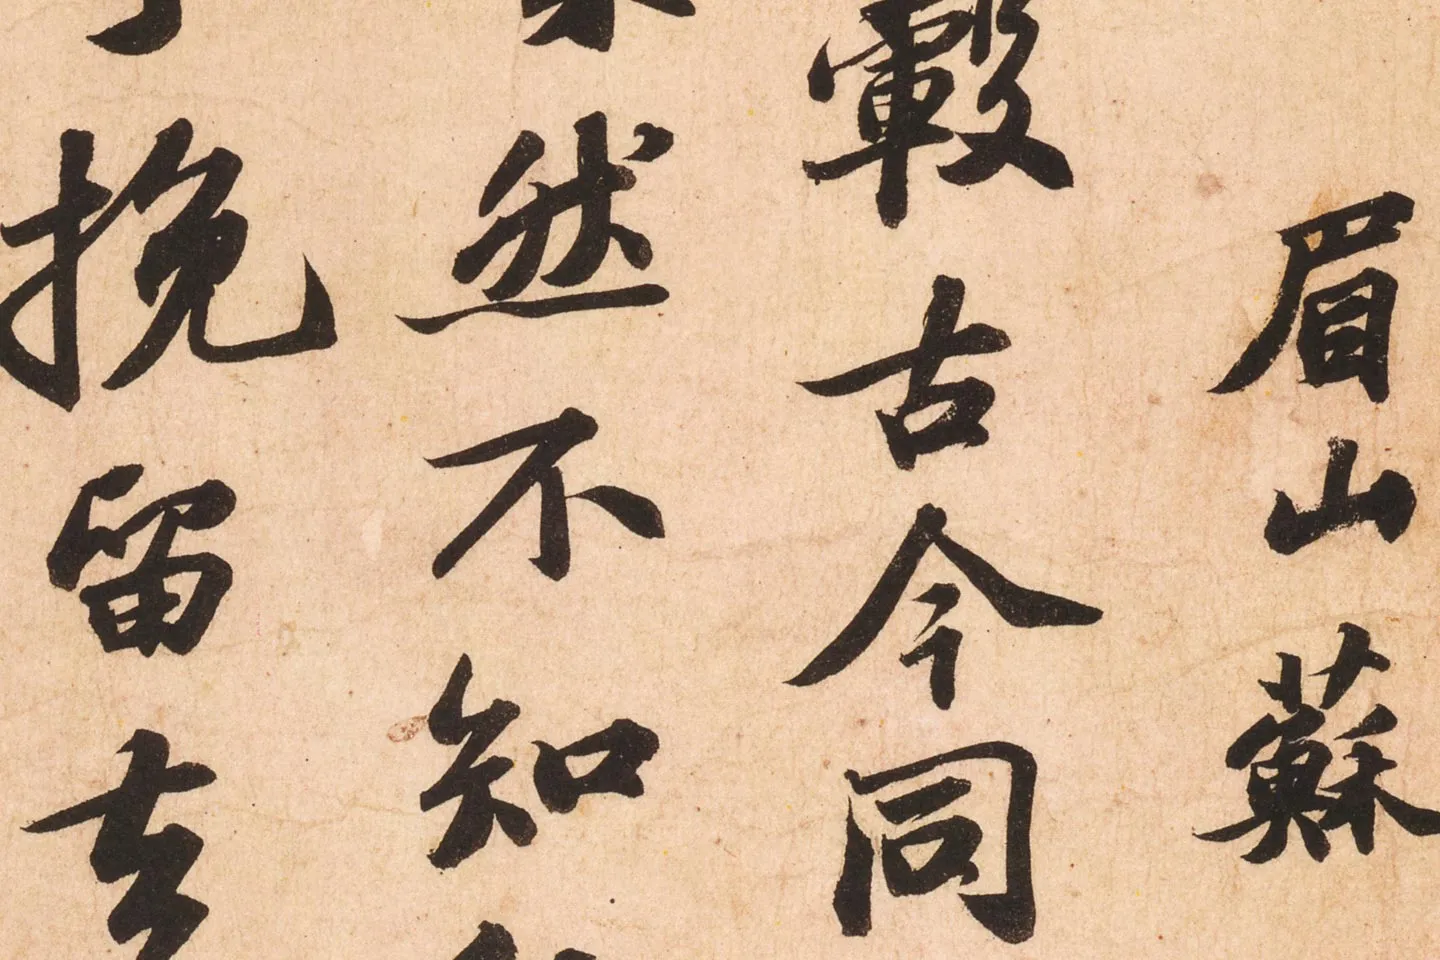 眉山蘇
轂古今同
然不知
挽留去